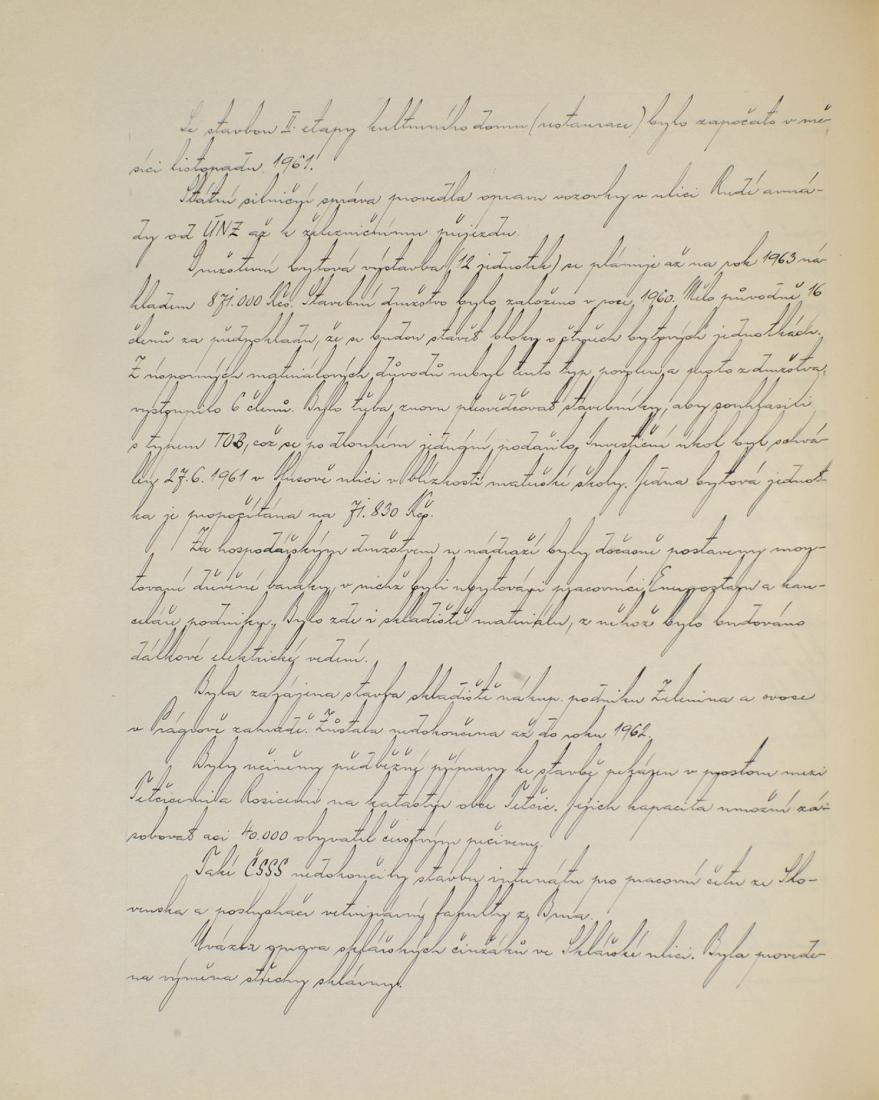 Se stavbou II. etapy kulturního domu (restaurace) bylo započato v mě-
síci listopadu 1961.
Státní silniční správa provedla opravu vozovky v ulici Rudé armá-
dy od ÚNZ až k železničnímu přejezdu.
Družstevní bytová výstavba (12 jednotek) se plánuje až na rok 1963 ná-
kladem 871.000 Kčs. Stavební družstvo bylo založeno v roce 1960. Mělo původně 16
členů za předpokladu, že se budou stavět bloky o čtyřech bytových jednotkách.
Z úsporných materiálových důvodů nebyl tento typ povolen a proto z družstva
vystoupilo 6 členů. Bylo třeba znovu přesvědčovat stavebníky, aby souhlasili
s typem TOB, což se po dlouhém jednání podařilo. Investiční úkol byl schvá-
len 27.6.1961 v Husově ulici v blízkosti mateřské školy. Jedna bytová jednot-
ka je propočítána na 71.830 Kčs.
Za hospodářským družstvem u nádraží byly dočasně postaveny mon-
tované dřevěné baraky, v nichž byli ubytováni pracovníci Energostavu a kan-
celáře podniku. Bylo zde i skladiště materiálu, z něhož bylo budováno
dálkové elektrické vedení.
Byla zahájena stavba skladiště nákup. podniku Zelenina a ovoce
v Prágrově zahradě. Zůstala nedokončena až do roku 1962.
Byly učiněny předběžné přípravy ke stavbě pekáren v prostoru mezi
Tetčicemi a Rosicemi na katastru obce Tetčic. Jejich kapacita umožní zá-
sobovat asi 40.000 obyvatel čerstvým pečivem.
Také ČSSS nedokončily stavbu internátu pro pracovní četu ze Slo-
venska a posluchače veterinární fakulty z Brna.
Uvázla oprava sklářských činžáků ve Sklářské ulici. Byla provede-
na výměna střechy sklárny.